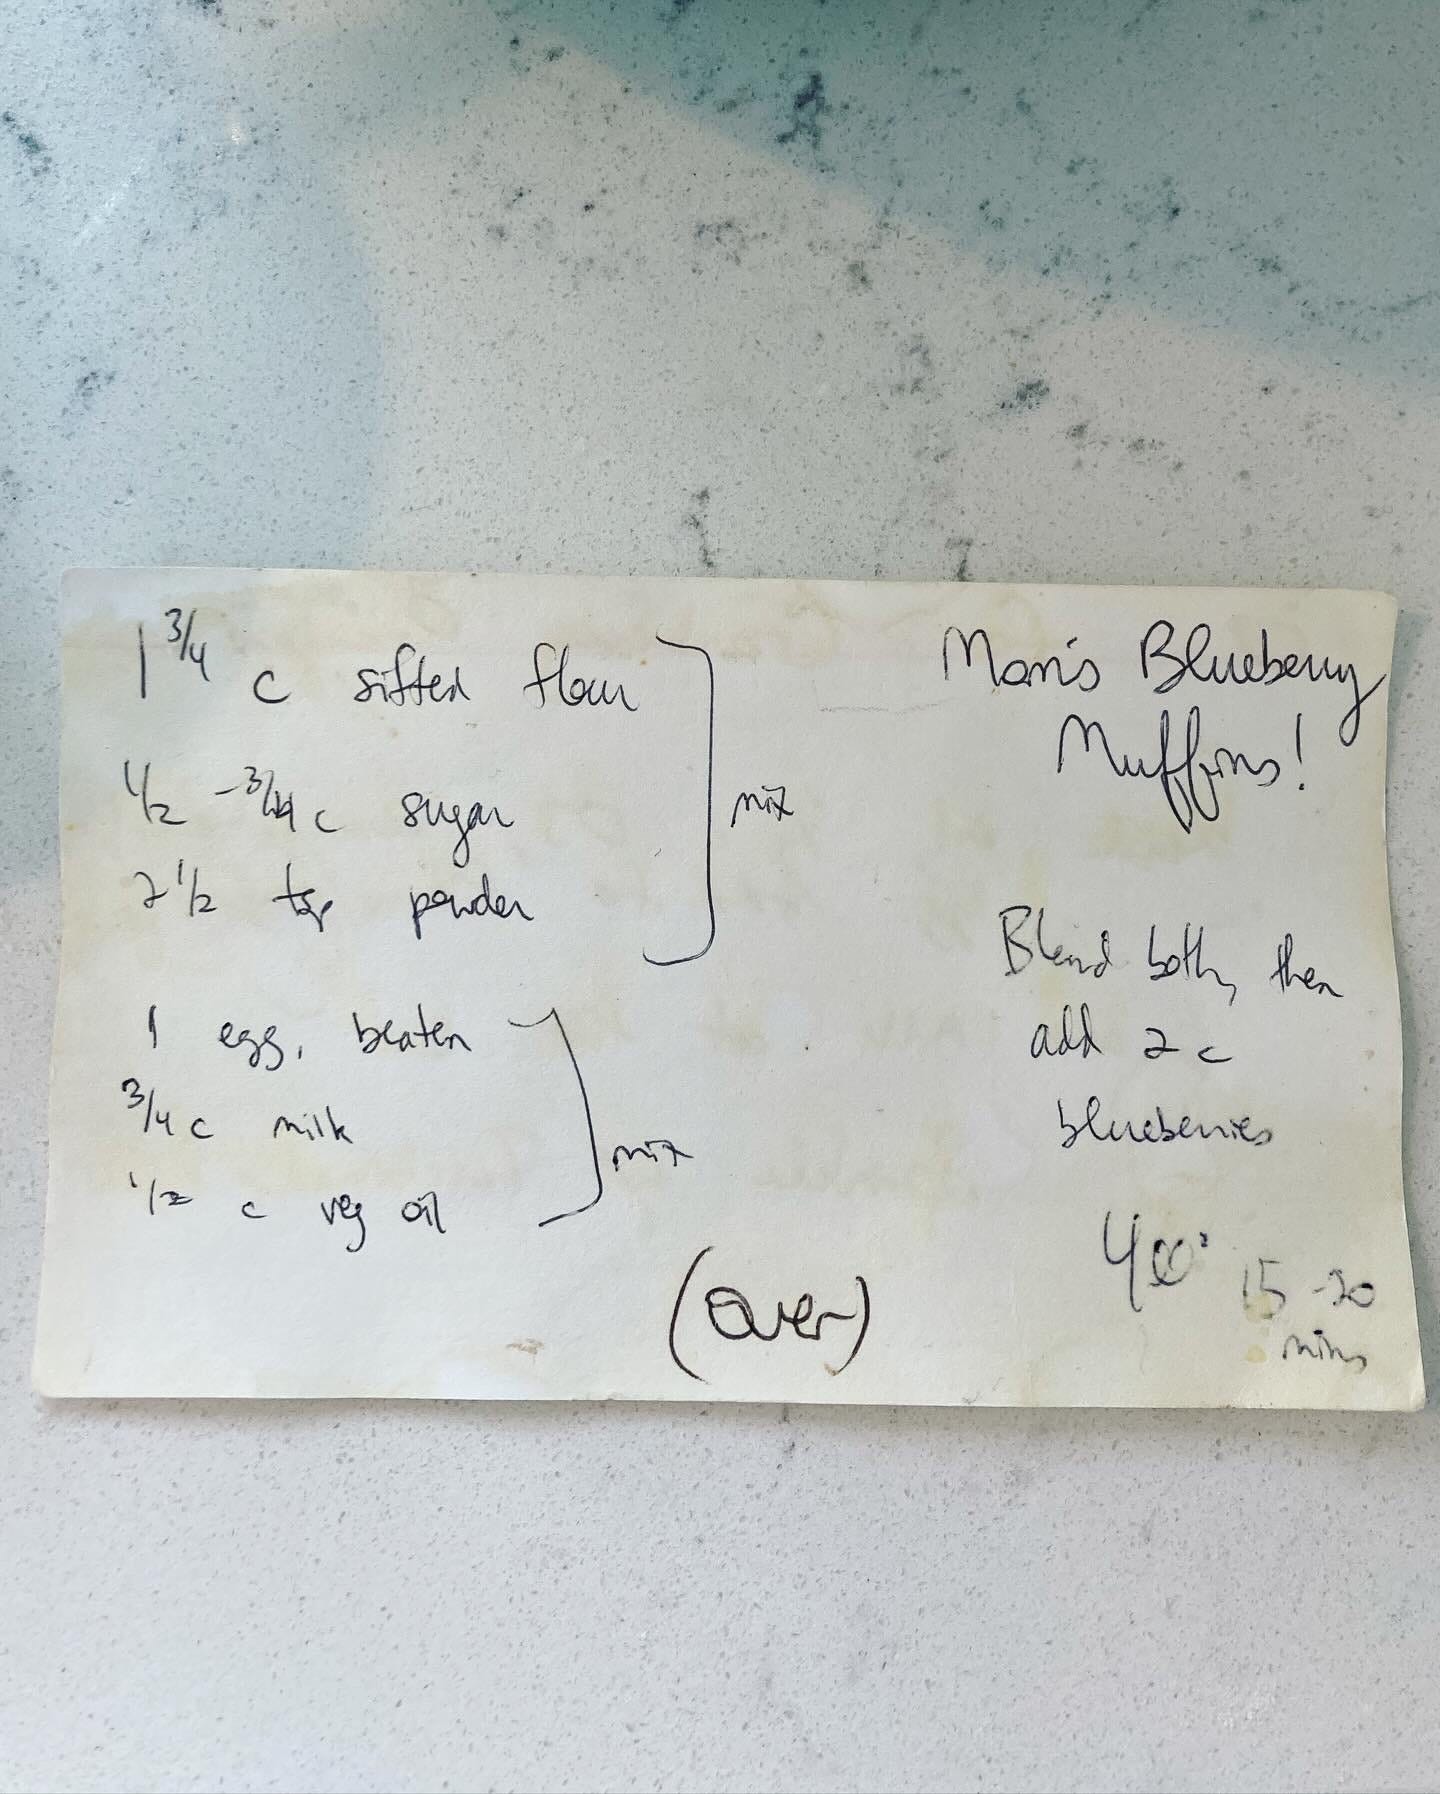 Mom's Blueberry
Muffins!
1 3/4 c sifted flour
1/2 - 3/4 c sugar
2 1/2 tsp powder
mix
1 egg, beaten
3/4 c milk
1/2 c veg oil
mix
Blend both, then
add 2 c
blueberries
400° 15-20
mins
(over)